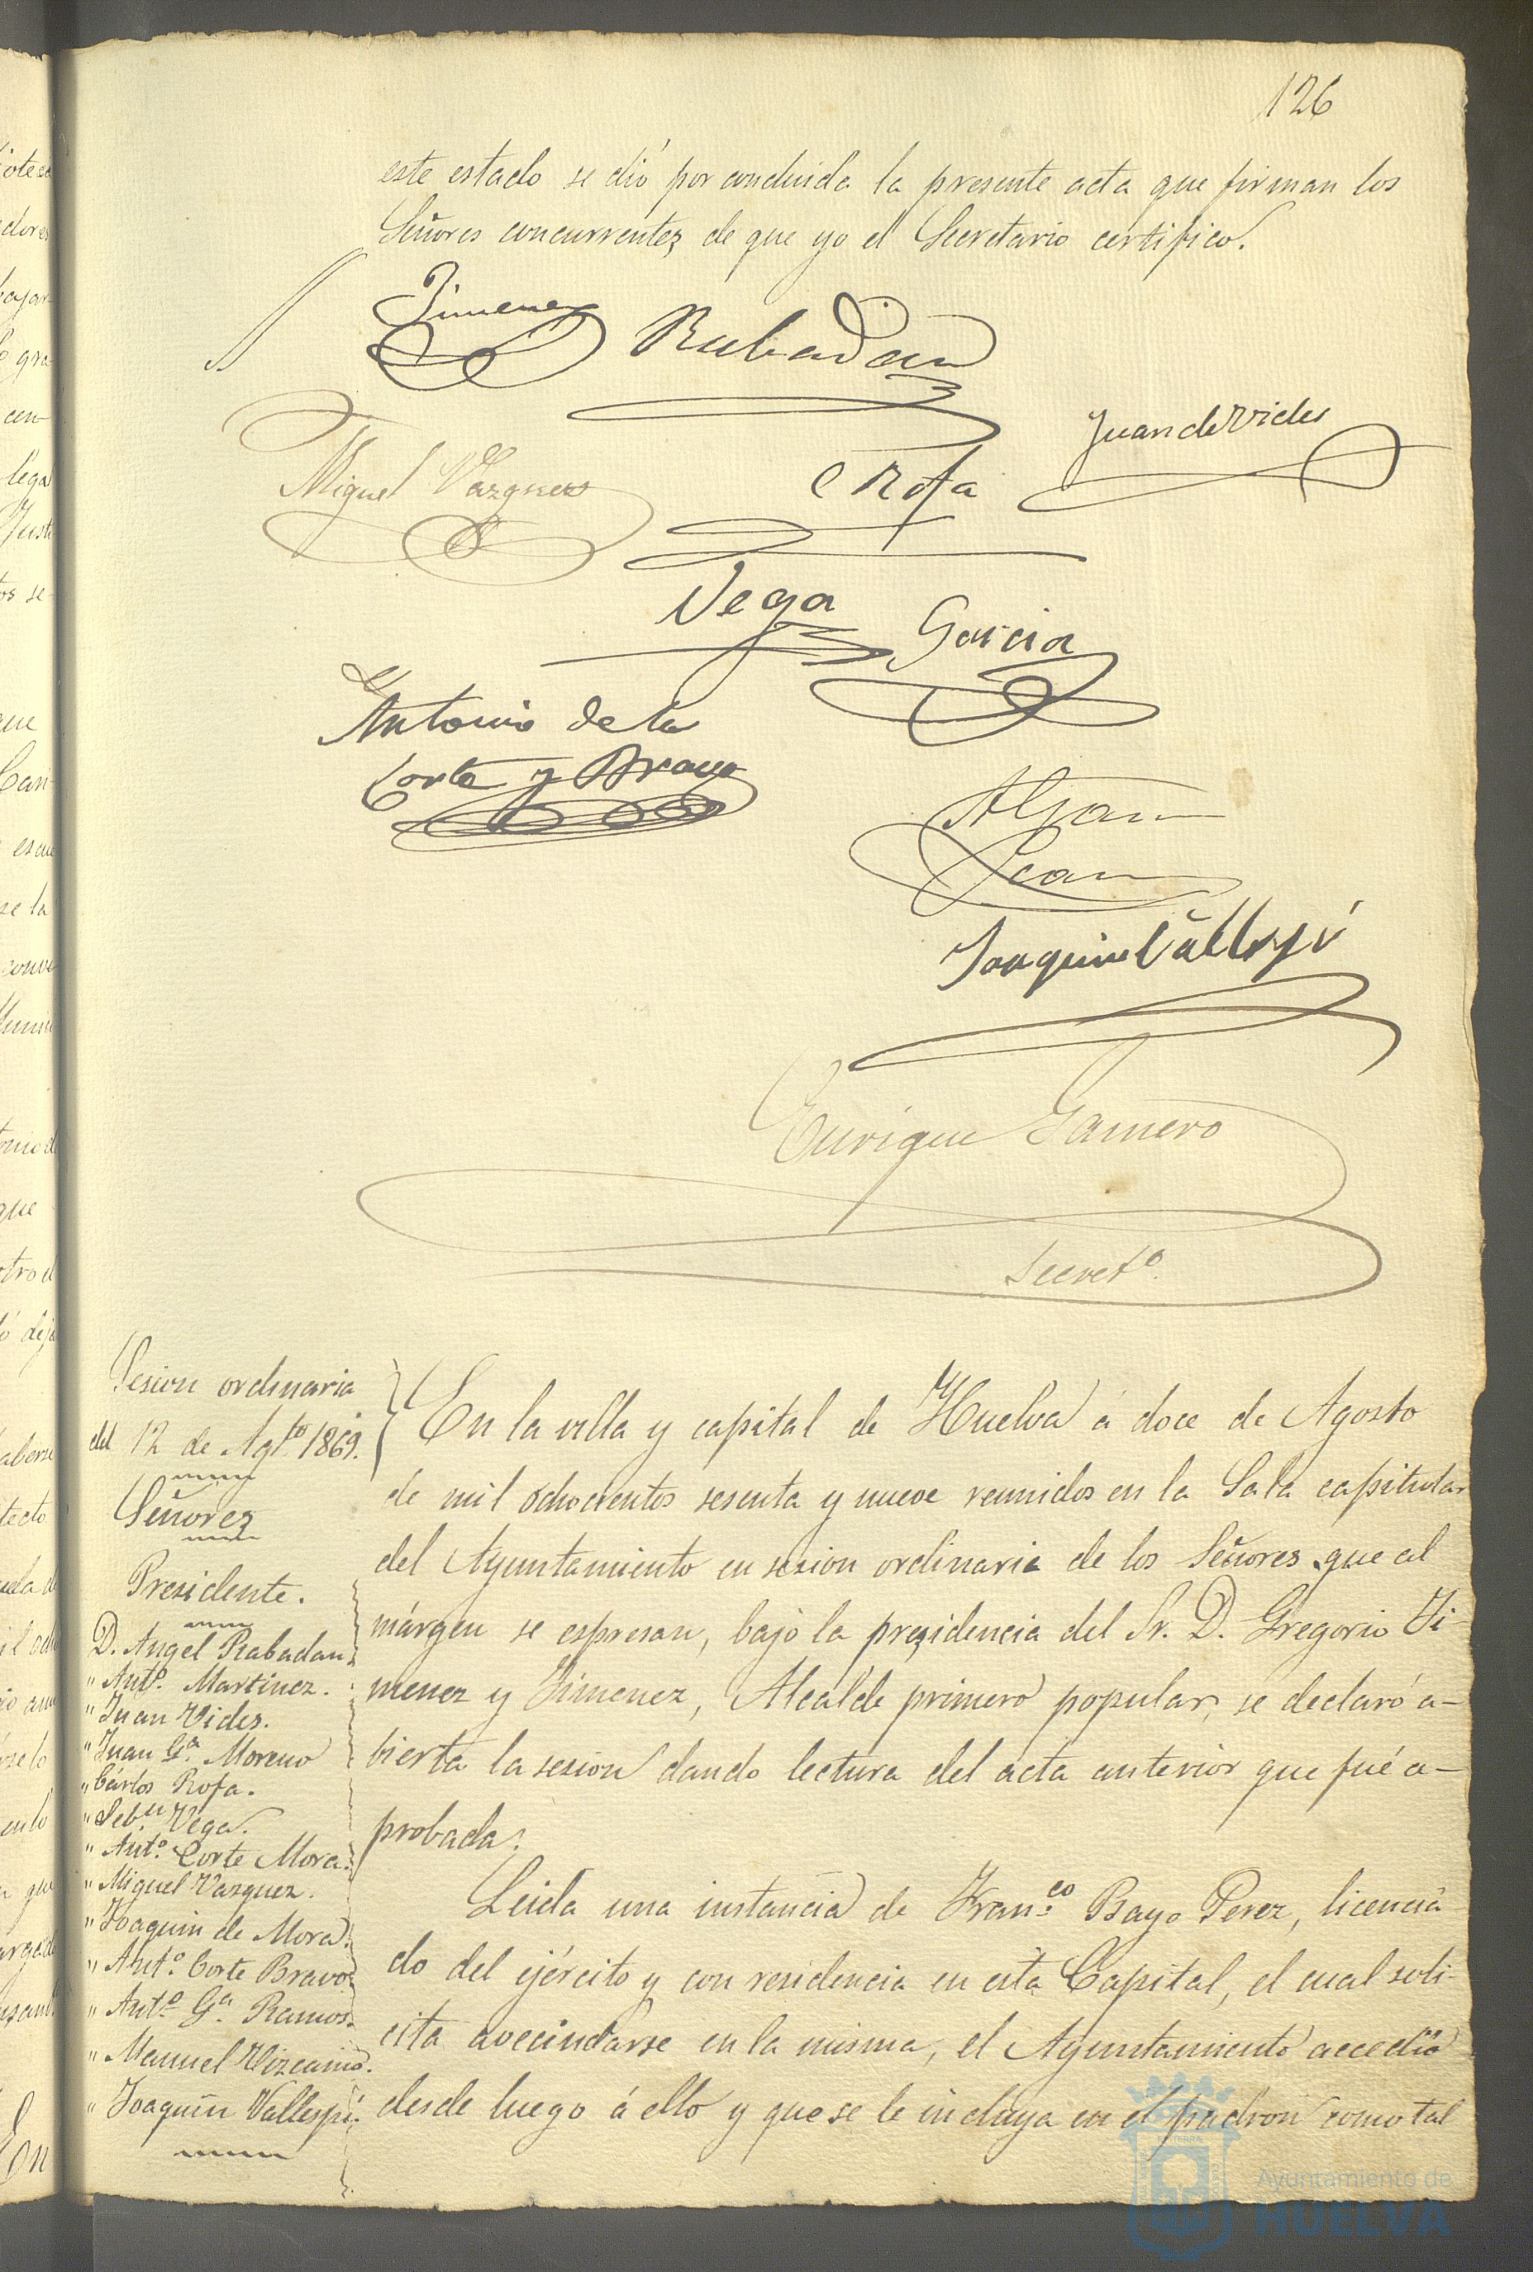 126
este estado se dió por concluida la presente acta que firman los
Señores concurrentes de que yo el Secretario certifico.
Jimenez
Rabadan
Juan de Vides
Miguel Vazquez
C Rofa
Vega
Garcia
Antonio de la
Corte y Bravo
Joaquin Vallespí
Enrique Gamero
Secret.º
Sesion ordinaria
del 12 de Agt.º 1869.
Señores
Presidente.
D. Angel Rabadan
" Ant.º Martinez.
" Juan Vides.
" Juan G.ª Moreno
" Cárlos Rofa.
" Seb.n Vega.
" Ant.º Corte Mora.
" Miguel Vazquez.
" Joaquin de Mora.
" Ant.º Corte Bravo
" Ant.º G.a Ramos.
" Manuel Vizcaino.
" Joaquin Vallespí.
En la villa y capital de Huelva á doce de Agosto
de mil ochocientos sesenta y nueve reunidos en la Sala capitular
del Ayuntamiento en sesion ordinaria de los Señores que al
márgen se espresan, bajo la presidencia del Sr. D. Gregorio Ji-
menez y Jimenez, Alcalde primero popular, se declaró a-
bierta la sesion dando lectura del acta anterior que fué a-
probada.
Leida una instancia de Fran.co Bayo Perez, licencia
do del ejército y con residencia en esta Capital, el cual soli-
cita avecindarse en la misma, el Ayuntamiento accedió
desde luego á ello y que se le incluya en el padron como tal
Ayuntamiento de
HUELVA